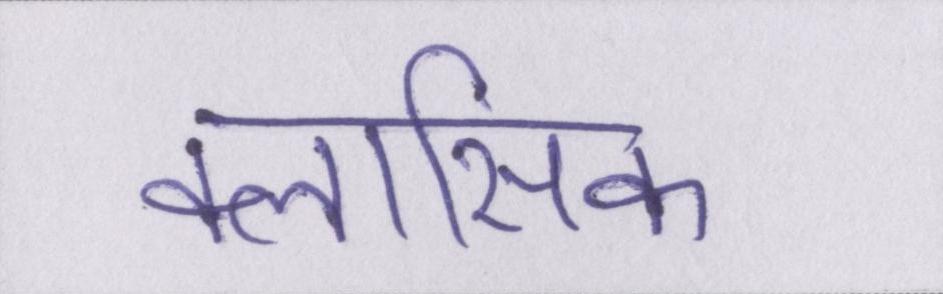 क्लासिंक